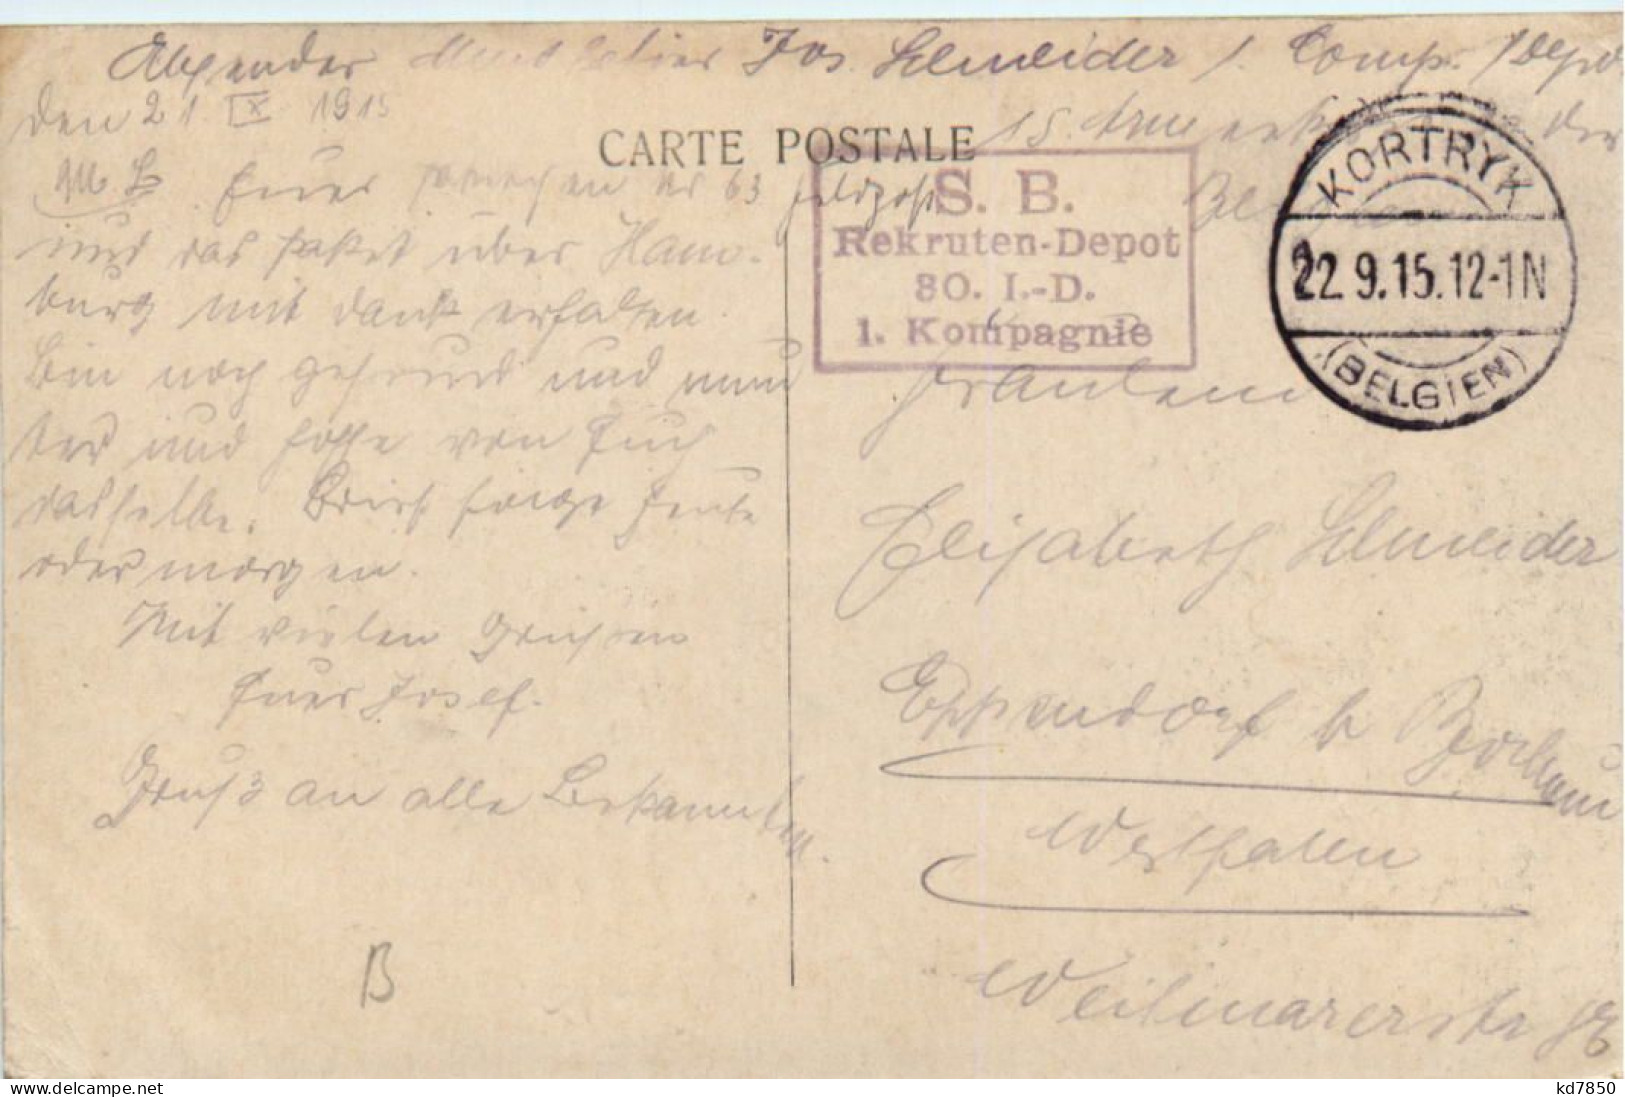 Absender Musketier Jos. Schneider 1. Comp. Depo
den 21. IX 1915
CARTE POSTALE
15. Armeekorps
M. L. Euer Schreiben Nr 63 Feldpost
S. B.
Rekruten-Depot
80. I.-D.
1. Kompagnie
KORTRYK
22.9.15.12-1N
(BELGIEN)
und das Paket über Ham-
burg mit Dank erhalten.
Bin noch gesund und mun
ter und hoffe von Euch
dasselbe. Brief folgt heute
oder morgen.
Mit vielen Grüßen
Euer Josef.
Gruß an alle Bekannten.
Fräulein
Elisabeth Schneider
Eppendorf b Bochum
Westfalen
Weitmarerstr
B
kd7850